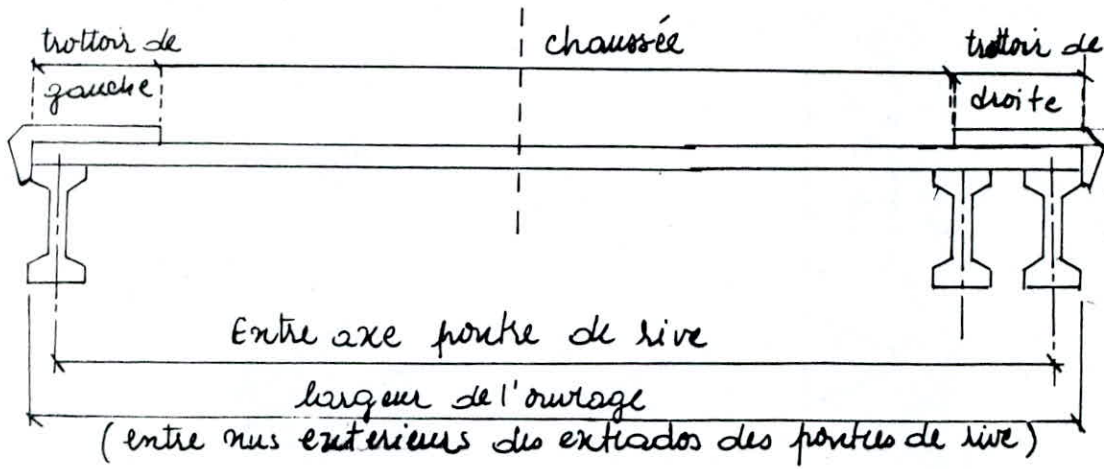 trottoir de
gauche
chaussée
trottoir de
droite
Entre axe poutre de rive
largeur de l'ouvrage
(entre nus exterieurs des extrados des poutres de rive)